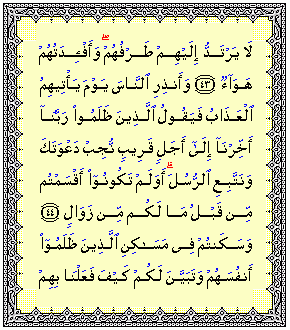 لَا يَرْتَدُّ إِلَيْهِمْ طَرْفُهُمْ ۖ وَأَفْـِٔدَتُهُمْ
هَوَآءٌ ﴿٤٣﴾ وَأَنذِرِ ٱلنَّاسَ يَوْمَ يَأْتِيهِمُ
ٱلْعَذَابُ فَيَقُولُ ٱلَّذِينَ ظَلَمُوا۟ رَبَّنَآ
أَخِّرْنَآ إِلَىٰٓ أَجَلٍ قَرِيبٍ نُّجِبْ دَعْوَتَكَ
وَنَتَّبِعِ ٱلرُّسُلَ ۗ أَوَلَمْ تَكُونُوٓا۟ أَقْسَمْتُم
مِّن قَبْلُ مَا لَكُم مِّن زَوَالٍ ﴿٤٤﴾
وَسَكَنتُمْ فِى مَسَـٰكِنِ ٱلَّذِينَ ظَلَمُوٓا۟
أَنفُسَهُمْ وَتَبَيَّنَ لَكُمْ كَيْفَ فَعَلْنَا بِهِمْ